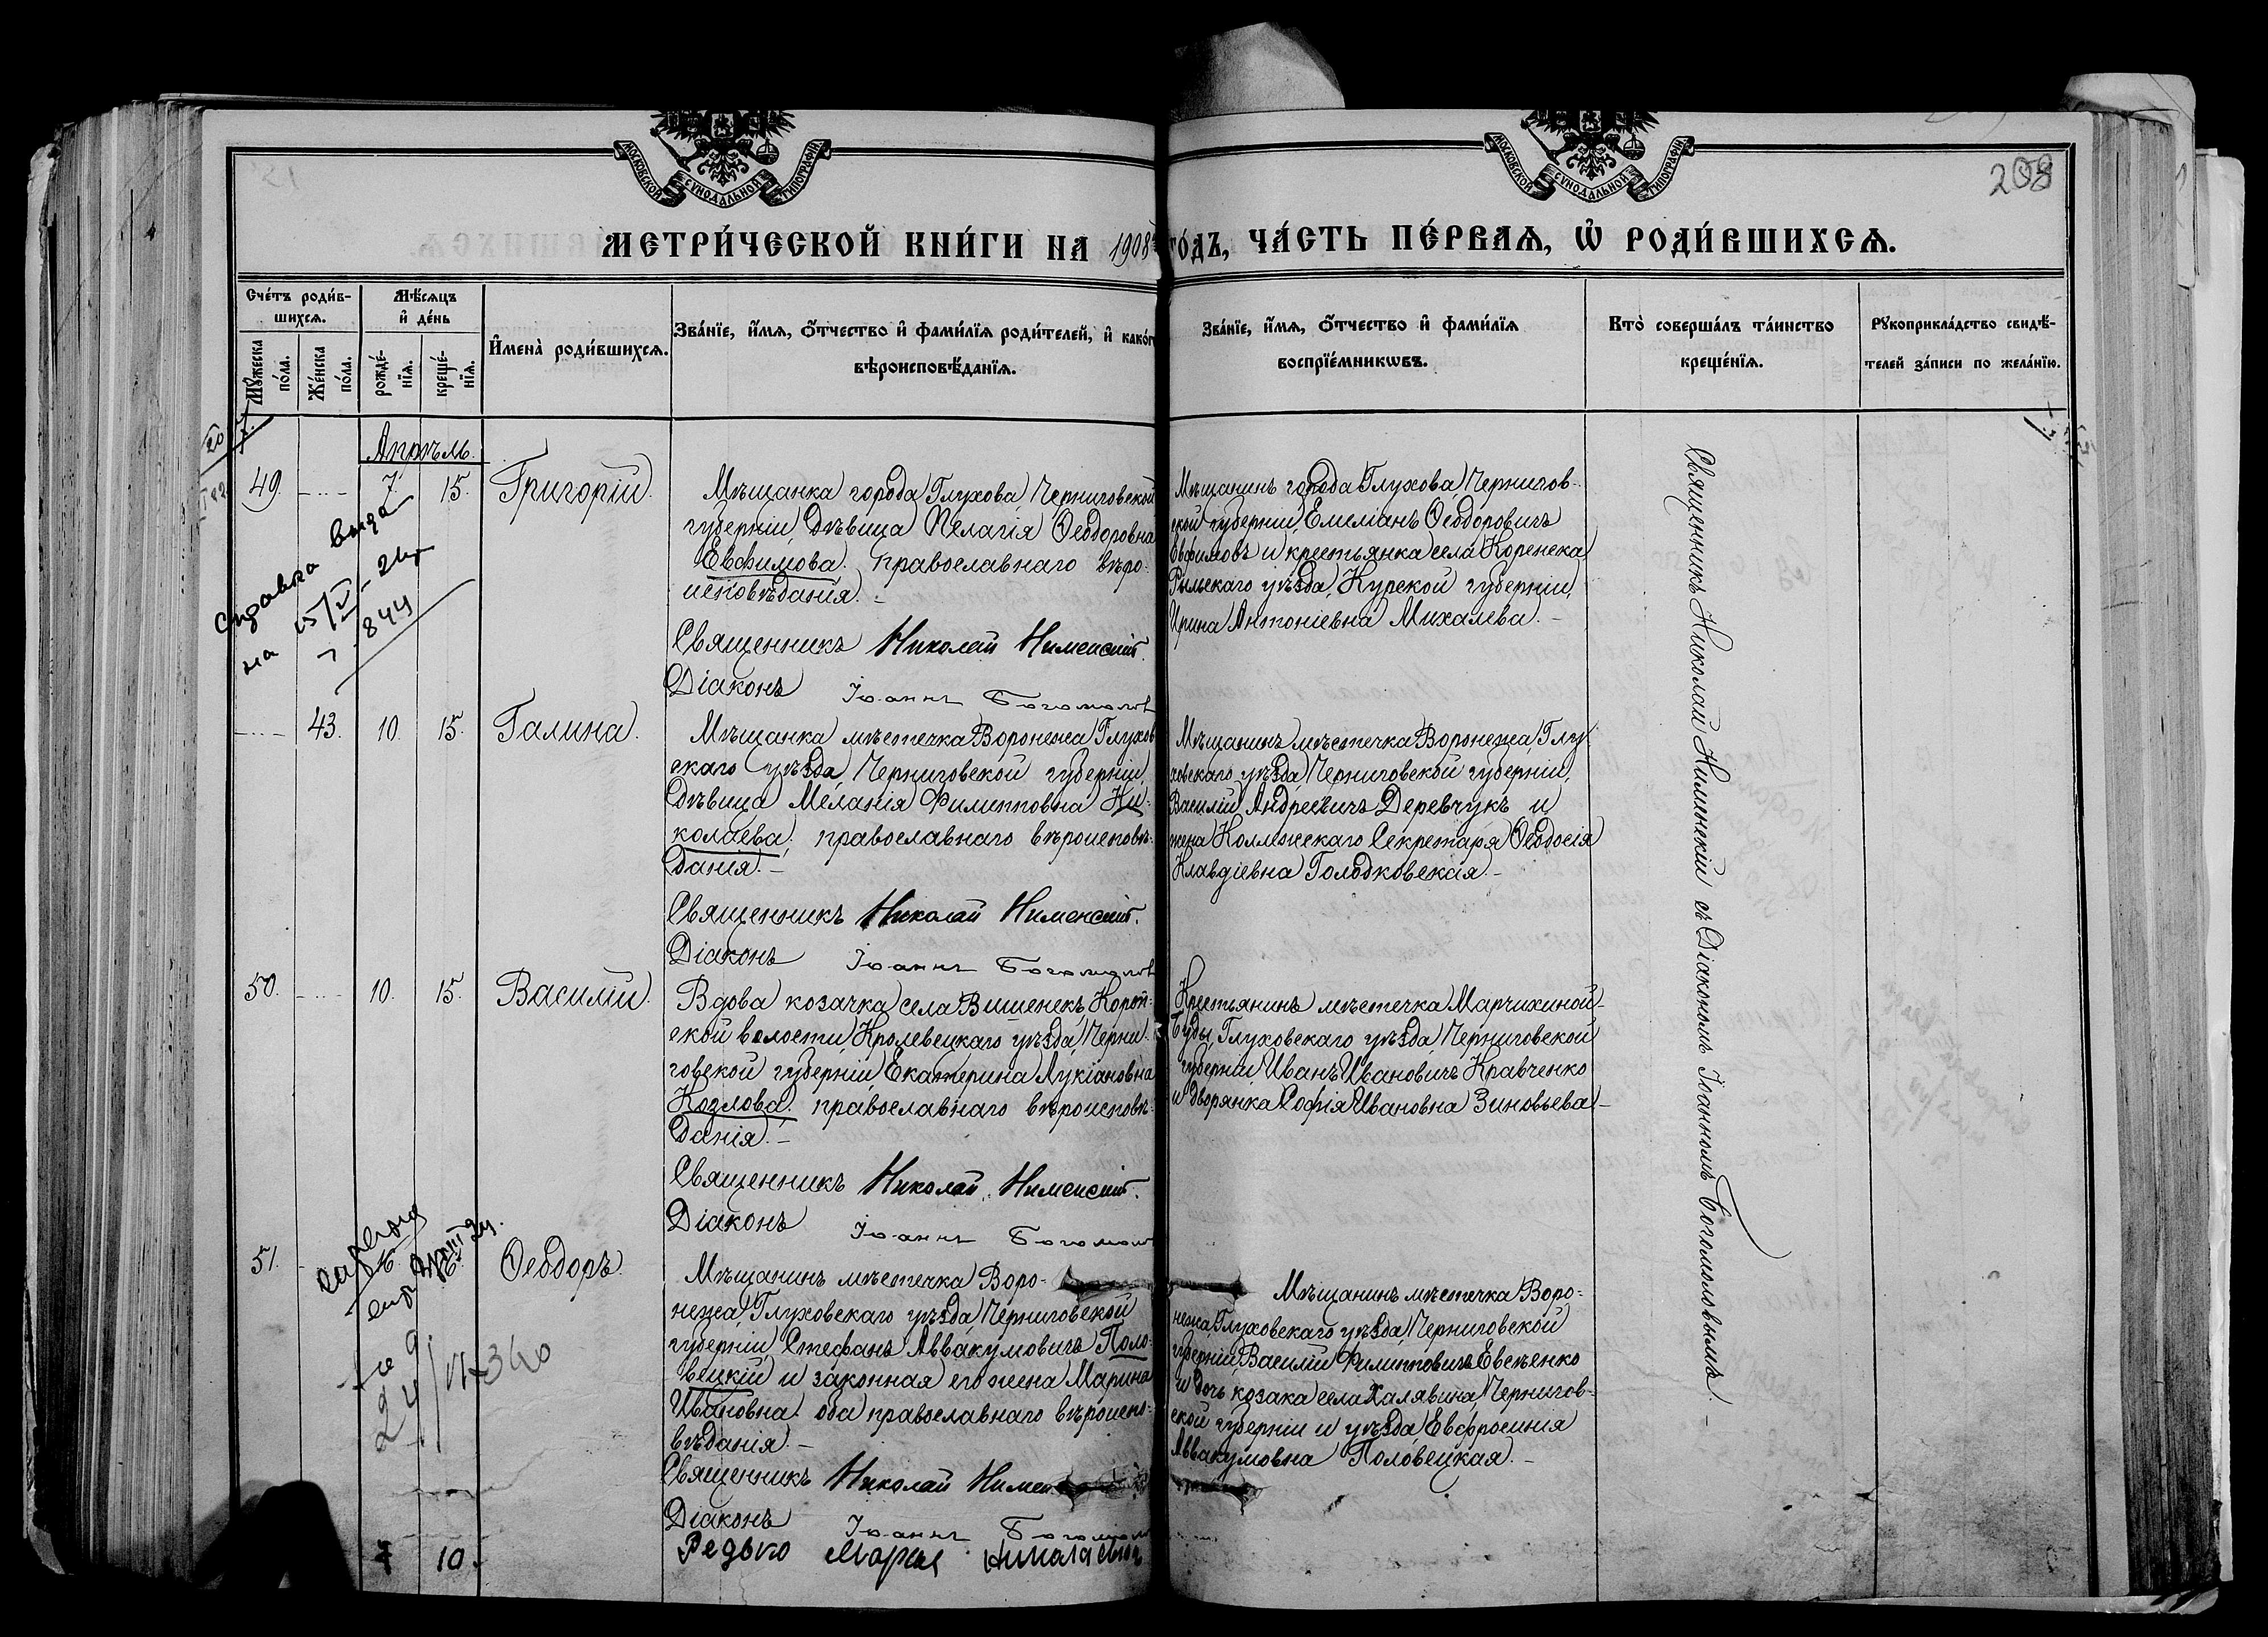 МОСКОВСКОЙ СѴНОДАЛЬНОЙ ТИПОГРАФІИ
МОСКОВСКОЙ СѴНОДАЛЬНОЙ ТИПОГРАФІИ
208
МЕТРИ́ЧЕСКОЙ КНИ́ГИ НА 1908 ГО́ДЪ, ЧА́СТЬ ПЕ́РВАѦ, Ѡ҆ РОДИ́ВШИХСѦ.
Сче́тъ роди́в-
шихсѧ.
Мꙋ́жеска по́ла.
Же́нска по́ла.
Мѣ́сѧцъ и҆ де́нь
рожде́-нїѧ.
креще́-нїѧ.
И҆мена̀ роди́вшихсѧ.
Зва́нїе, и҆́мѧ, ѻ҆́тчество и҆ фами́лїѧ роди́телей, и҆ како́гѡ
вѣроисповѣ́данїѧ.
Зва́нїе, и҆́мѧ, ѻ҆́тчество и҆ фами́лїѧ
воспрїе́мникѡвъ.
Кто̀ соверша́лъ та́инство
креще́нїѧ.
Рꙋкоприкла́дство свидѣ́-
телей за́писи по жела́нїю.
Апрѣль.
49. 7. 15. Григорій.
Мѣщанка города Глухова, Черниговской
губерніи, дѣвица Пелагія Ѳеодоровна
Евфимова. православнаго вѣро-
исповѣданія. -
Священникъ Николай Нименскій.
Діаконъ Іоаннъ Богомолов
Мѣщанинъ города Глухова, Чернигов-
ской губерніи, Емеліанъ Ѳеодоровичъ
Евфимовъ и крестьянка села Коренска
Рыльскаго уѣзда, Курской губерніи,
Ирина Антоніевна Михалева. -
Справка выда
на 15/V - 24
844
43. 10. 15. Галина.
Мѣщанка мѣстечка Воронежа, Глухов
скаго уѣзда, Черниговской губерніи,
дѣвица Меланія Филипповна Ни-
колаева. православнаго вѣроисповѣ-
данія. -
Священникъ Николай Нименскій.
Діаконъ Іоаннъ Богомолов
Мѣщанинъ мѣстечка Воронежа, Глу-
ховскаго уѣзда, Черниговской губерніи,
Василій Андреевичъ Деревчукъ и
жена Коллежскаго Секретаря Ѳеодосія
Клавдіевна Голодковская. -
50. 10. 15. Василій.
Вдова козачка села Вишенекъ, Короп-
ской волости, Кролевецкаго уѣзда, Черни-
говской губерніи, Екатерина Лукіановна
Козлова. православнаго вѣроисповѣ-
данія. -
Священникъ Николай Нименскій.
Діаконъ Іоаннъ Богомолов
Крестьянинъ мѣстечка Марчихиной-
Буды, Глуховскаго уѣзда, Черниговской
губерніи, Иванъ Ивановичъ Кравченко
и дворянка Софія Ивановна Зиновьева. -
51. Ѳеодоръ.
Мѣщанинъ мѣстечка Воро-
нежа, Глуховскаго уѣзда, Черниговской
губерніи Стефанъ Аввакумовичъ Поло-
вецкій и законная его жена Марина
Ивановна. оба православнаго вѣроиспо-
вѣданія. -
Священникъ Николай Нимен
Діаконъ Іоаннъ Богомолов
Мѣщанинъ мѣстечка Воро-
нежа, Глуховскаго уѣзда, Черниговской
губерніи, Василій Филипповичъ Евсѣенко
и дочь козака села Халявина, Чернигов-
ской губерніи и уѣзда, Евфросинія
Аввакумовна Половецкая. -
10. Редько Мария Николаевна
Священникъ Николай Нименскій съ Діакономъ Іоанномъ Богомоловымъ. -